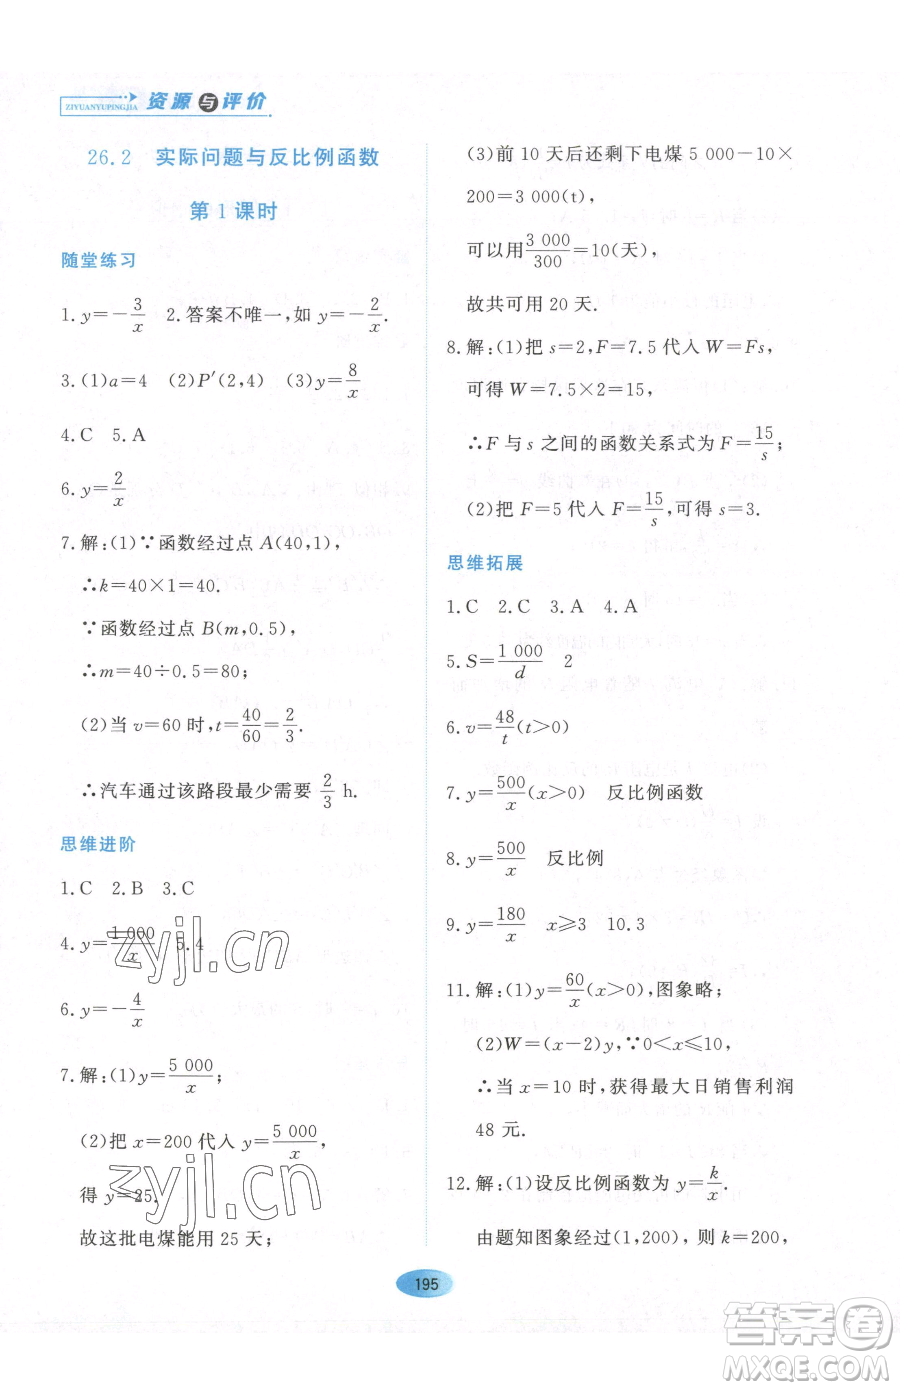 ZIYUANYUPINGJIA 资源与评价
26.2 实际问题与反比例函数
第1课时
随堂练习
1. y=-3/x  2. 答案不唯一,如 y=-2/x.
3. (1)a=4  (2)P′(2,4)  (3)y=8/x
4. C  5. A
6. y=2/x
7. 解:(1)∵函数经过点 A(40,1),
∴k=40×1=40.
∵函数经过点 B(m,0.5),
∴m=40÷0.5=80;
(2)当 v=60 时,t=40/60=2/3.
∴汽车通过该路段最少需要 2/3 h.
思维进阶
1. C  2. B  3. C
4. y=1 000/x  5. 4
6. y=-4/x
7. 解:(1)y=5 000/x;
(2)把 x=200 代入 y=5 000/x,
得 y=25,
故这批电煤能用 25 天;
(3)前 10 天后还剩下电煤 5 000-10×
200=3 000(t),
可以用3 000/300=10(天),
故共可用 20 天.
8. 解:(1)把 s=2,F=7.5 代入 W=Fs,
可得 W=7.5×2=15,
∴F 与 s 之间的函数关系式为 F=15/s;
(2)把 F=5 代入 F=15/s,可得 s=3.
思维拓展
1. C  2. C  3. A  4. A
5. S=1 000/d  2
6. v=48/t(t>0)
7. y=500/x(x>0)  反比例函数
8. y=500/x  反比例
9. y=180/x  x≥3  10. 3
11. 解:(1)y=60/x(x>0),图象略;
(2)W=(x-2)y,∵0<x≤10,
∴当 x=10 时,获得最大日销售利润
48 元.
12. 解:(1)设反比例函数为 y=k/x.
由题知图象经过(1,200),则 k=200,
195
zyjl.cn
zyjl.cn
答案圈
MXQE.COM